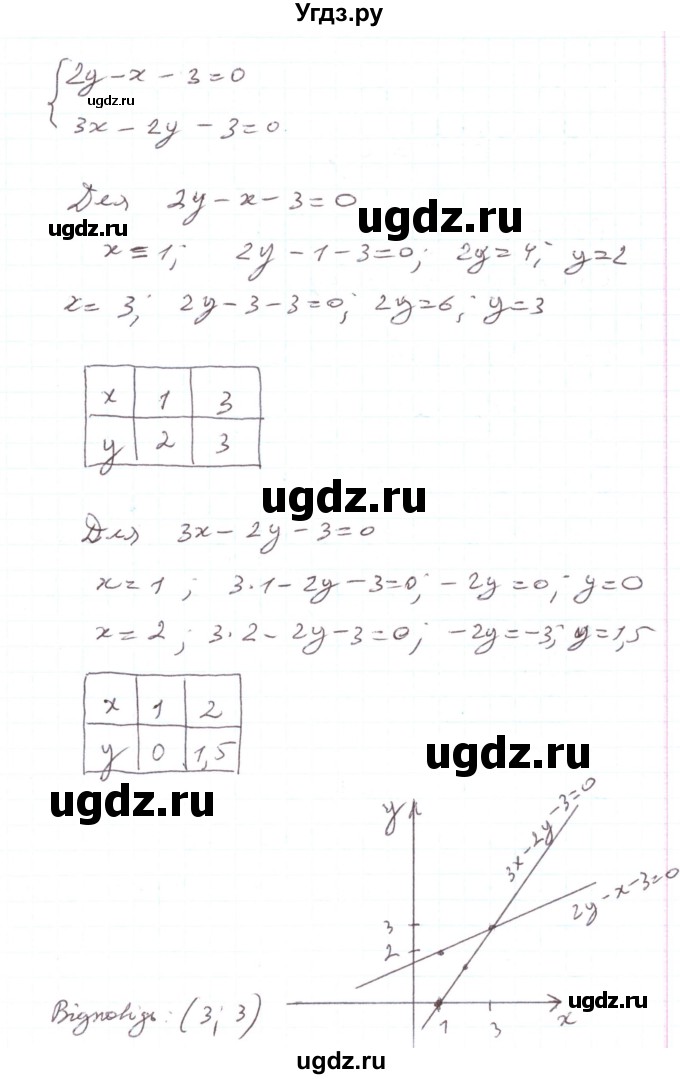 Угдз.ру
2y - x - 3 = 0
ugdz.ru
3x - 2y - 3 = 0
Для 2y - x - 3 = 0
ugdz.ru
ugdz.ru
x = 1; 2y - 1 - 3 = 0; 2y = 4; y = 2
x = 3; 2y - 3 - 3 = 0; 2y = 6; y = 3
x 1 3
y 2 3
ugdz.ru
Для 3x - 2y - 3 = 0
x = 1; 3·1 - 2y - 3 = 0; -2y = 0; y = 0
x = 2; 3·2 - 2y - 3 = 0; -2y = -3; y = 1,5
x 1 2
y 0 1,5
ugdz.ru
ugdz.ru
y
3x - 2y - 3 = 0
2y - x - 3 = 0
3
2
1 3 x
ugdz.ru
Відповідь: (3; 3)
ugdz.ru